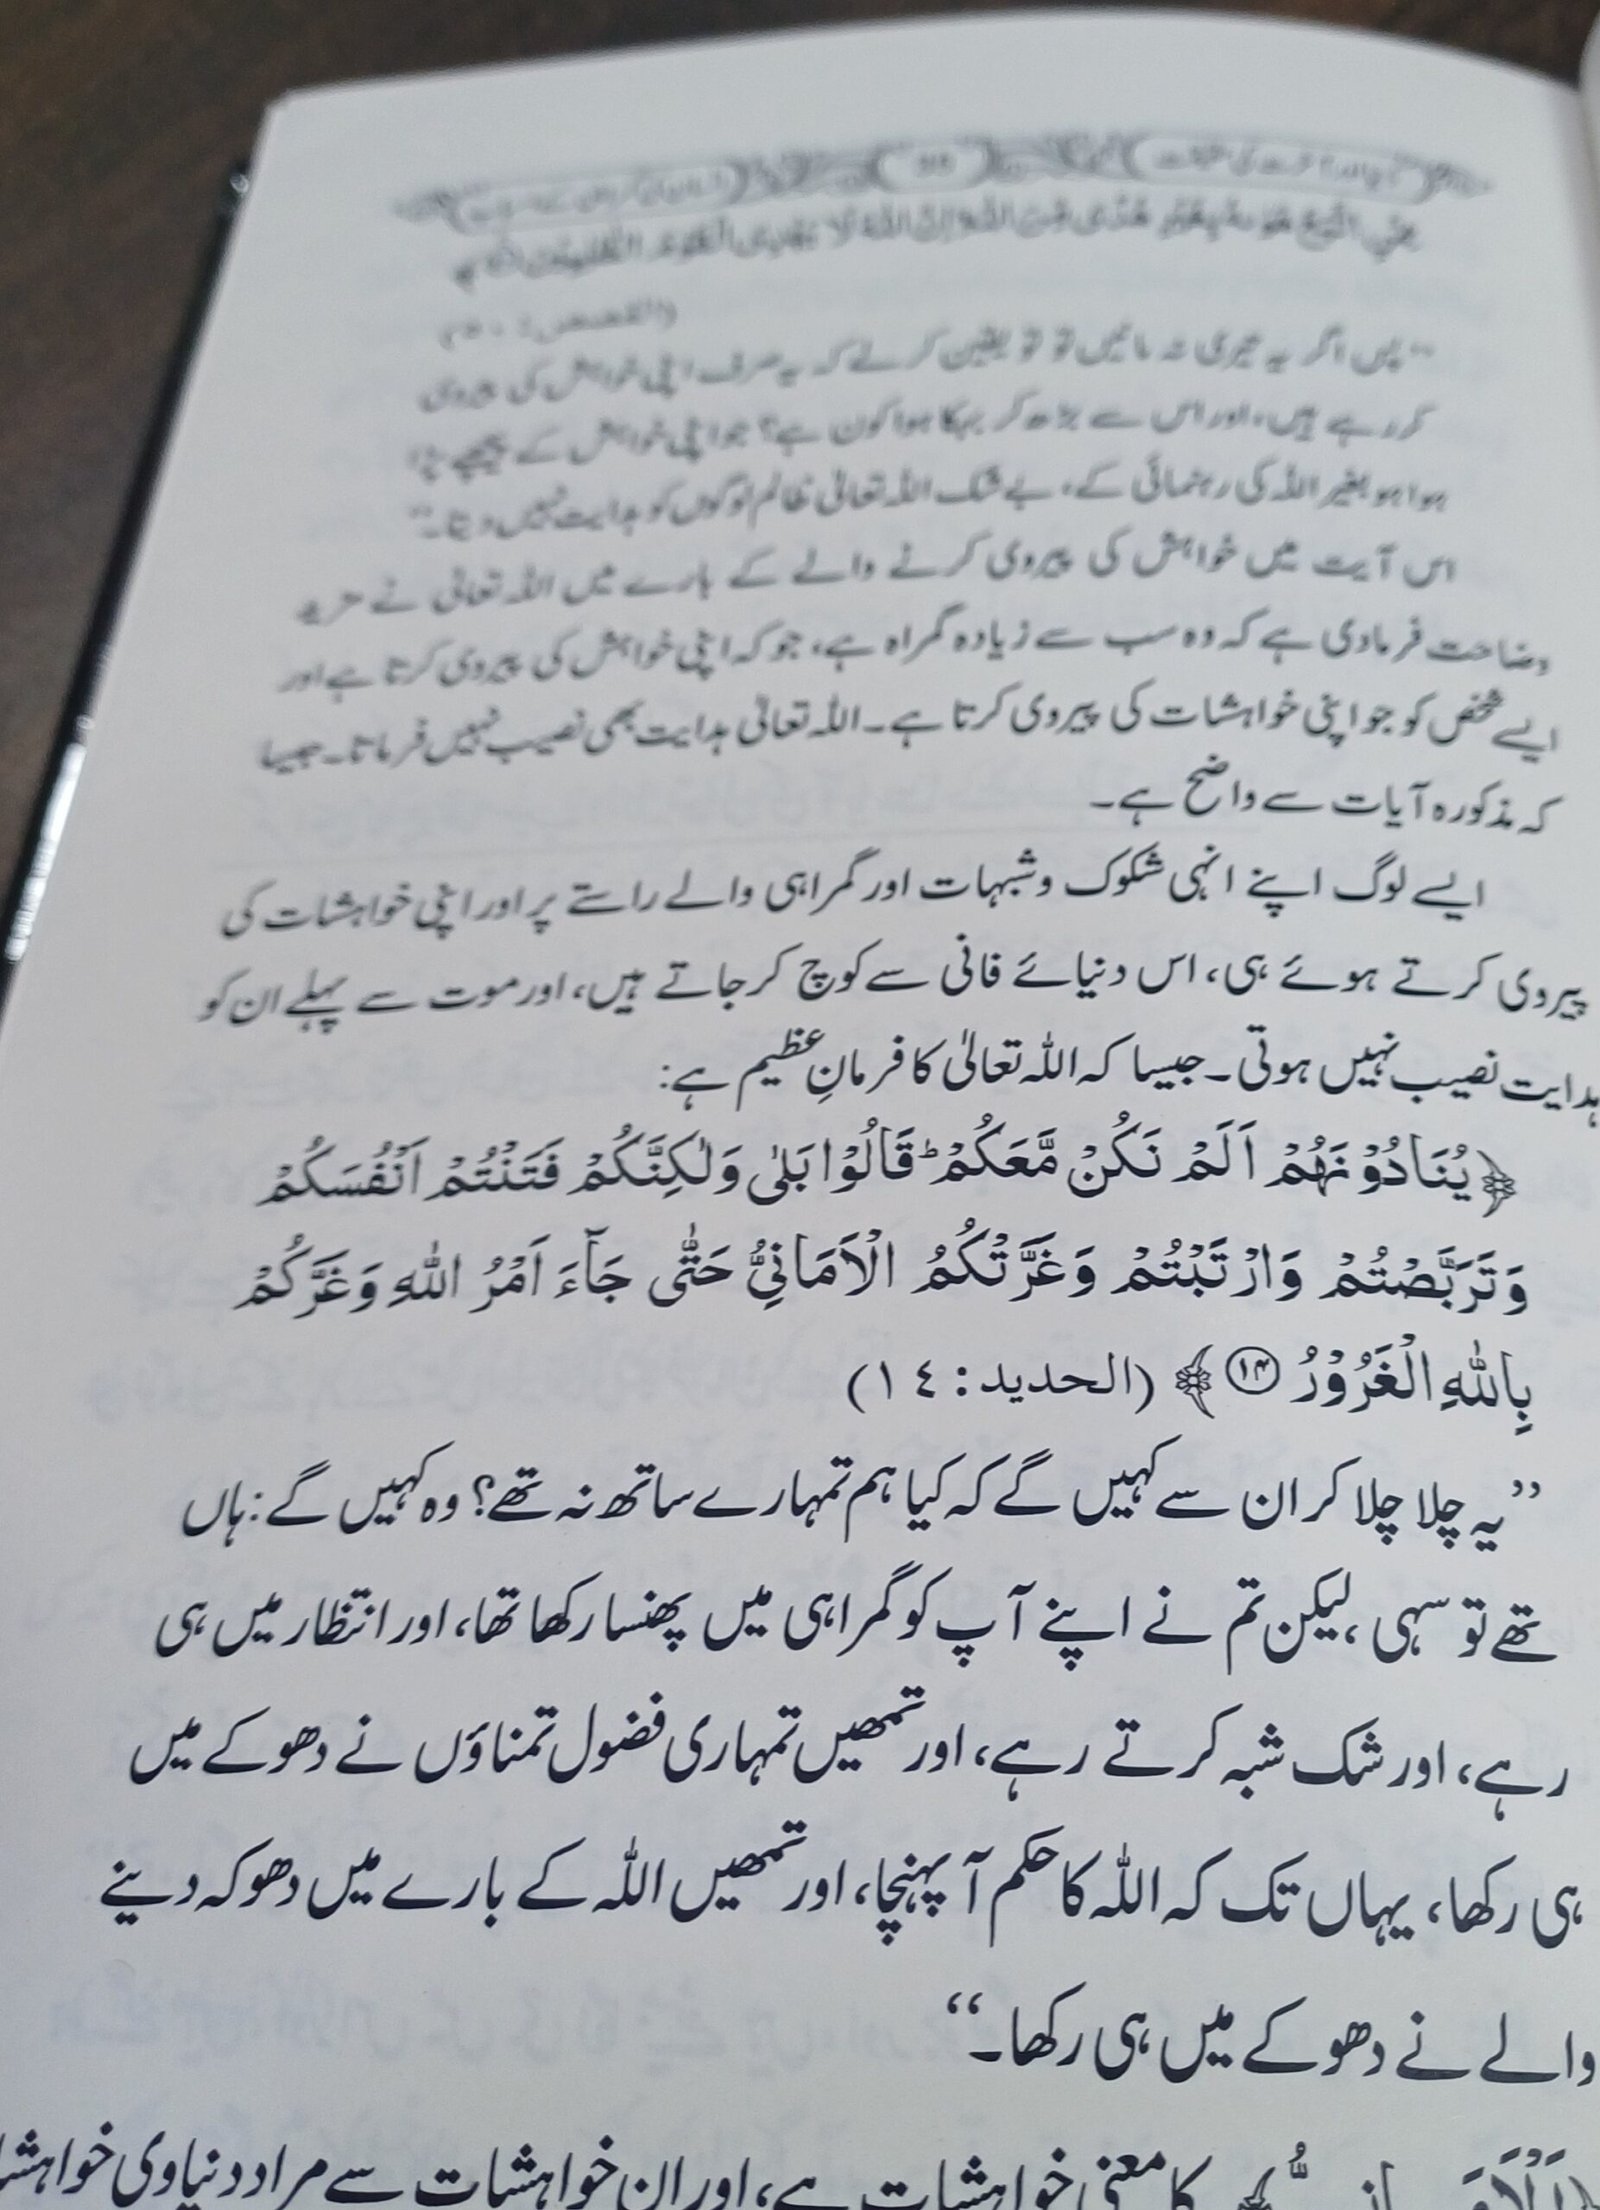 هَوٰىهُ بِغَيْرِ هُدًى مِّنَ اللّٰهِ اِنَّ اللّٰهَ لَا يَهْدِى الْقَوْمَ الظّٰلِمِيْنَ
(القصص: ٥٠)
”پس اگر یہ تیری نہ مانیں تو تو یقین کر لے کہ یہ صرف اپنی خواہش کی پیروی
کر رہے ہیں، اور اس سے بڑھ کر بہکا ہوا کون ہے؟ جو اپنی خواہش کے پیچھے پڑا
ہوا ہو بغیر اللہ کی رہنمائی کے، بے شک اللہ تعالیٰ ظالم لوگوں کو ہدایت نہیں دیتا۔“
اس آیت میں خواہش کی پیروی کرنے والے کے بارے میں اللہ تعالیٰ نے مزید
وضاحت فرمادی ہے کہ وہ سب سے زیادہ گمراہ ہے، جو کہ اپنی خواہش کی پیروی کرتا ہے اور
ایسے شخص کو جو اپنی خواہشات کی پیروی کرتا ہے۔ اللہ تعالیٰ ہدایت بھی نصیب نہیں فرماتا۔ جیسا
کہ مذکورہ آیات سے واضح ہے۔
ایسے لوگ اپنے انہی شکوک و شبہات اور گمراہی والے راستے پر اور اپنی خواہشات کی
پیروی کرتے ہوئے ہی، اس دنیائے فانی سے کوچ کر جاتے ہیں، اور موت سے پہلے ان کو
ہدایت نصیب نہیں ہوتی۔ جیسا کہ اللہ تعالیٰ کا فرمانِ عظیم ہے:
﴿يُنَادُوْنَهُمْ اَلَمْ نَكُنْ مَّعَكُمْ ؕ قَالُوْا بَلٰى وَلٰكِنَّكُمْ فَتَنْتُمْ اَنْفُسَكُمْ
وَتَرَبَّصْتُمْ وَارْتَبْتُمْ وَغَرَّتْكُمُ الْاَمَانِىُّ حَتّٰى جَآءَ اَمْرُ اللّٰهِ وَغَرَّكُمْ
بِاللّٰهِ الْغَرُوْرُ ۝۱۴﴾ (الحديد: ١٤)
”یہ چلا چلا کر ان سے کہیں گے کہ کیا ہم تمہارے ساتھ نہ تھے؟ وہ کہیں گے: ہاں
تھے تو سہی، لیکن تم نے اپنے آپ کو گمراہی میں پھنسا رکھا تھا، اور انتظار میں ہی
رہے، اور شک شبہ کرتے رہے، اور تمھیں تمہاری فضول تمناؤں نے دھوکے میں
ہی رکھا، یہاں تک کہ اللہ کا حکم آ پہنچا، اور تمھیں اللہ کے بارے میں دھوکہ دینے
والے نے دھوکے میں ہی رکھا۔“
﴾ کا معنی خواہشات ہے، اور ان خواہشات سے مراد دنیاوی